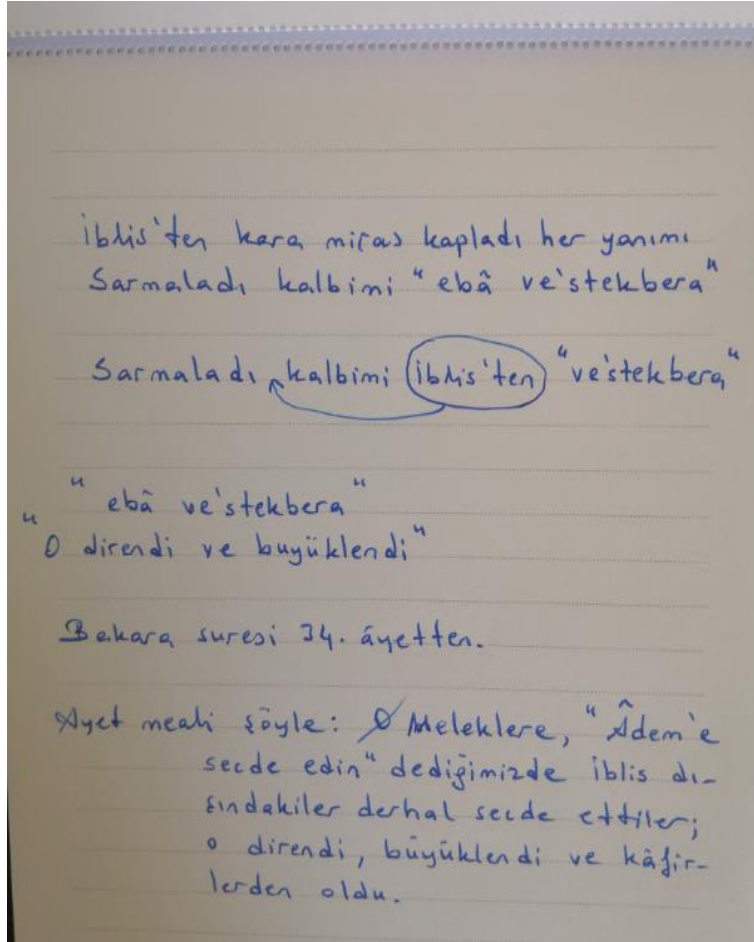 iblis'ten kara miras kapladı her yanımı
Sarmaladı kalbimi "ebâ ve'stekbera"
Sarmaladı kalbimi iblis'ten "ve'stekbera"
"ebâ ve'stekbera"
"O direndi ve buyüklendi"
Bakara suresi 34. âyetten.
Ayet meali şöyle: Meleklere, "Âdem'e
secde edin" dediğimizde iblis dı-
şındakiler derhal secde ettiler;
o direndi, büyüklendi ve kâfir-
lerden oldu.